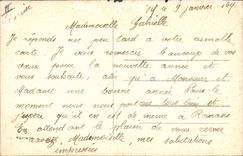 le 9 janvier
Mademoiselle Gabrielle
Je réponds un peu tard à votre
carte. Je vous remercie beaucoup de vos
vœux pour la nouvelle année et vous
souhaite, ainsi qu'à Monsieur et
Madame une bonne année. Pour le
moment nous nous portons tous bien et
j'espère qu'il en est de même à Romans
En attendant le plaisir de vous
Mademoiselle, mes salutations
empressées